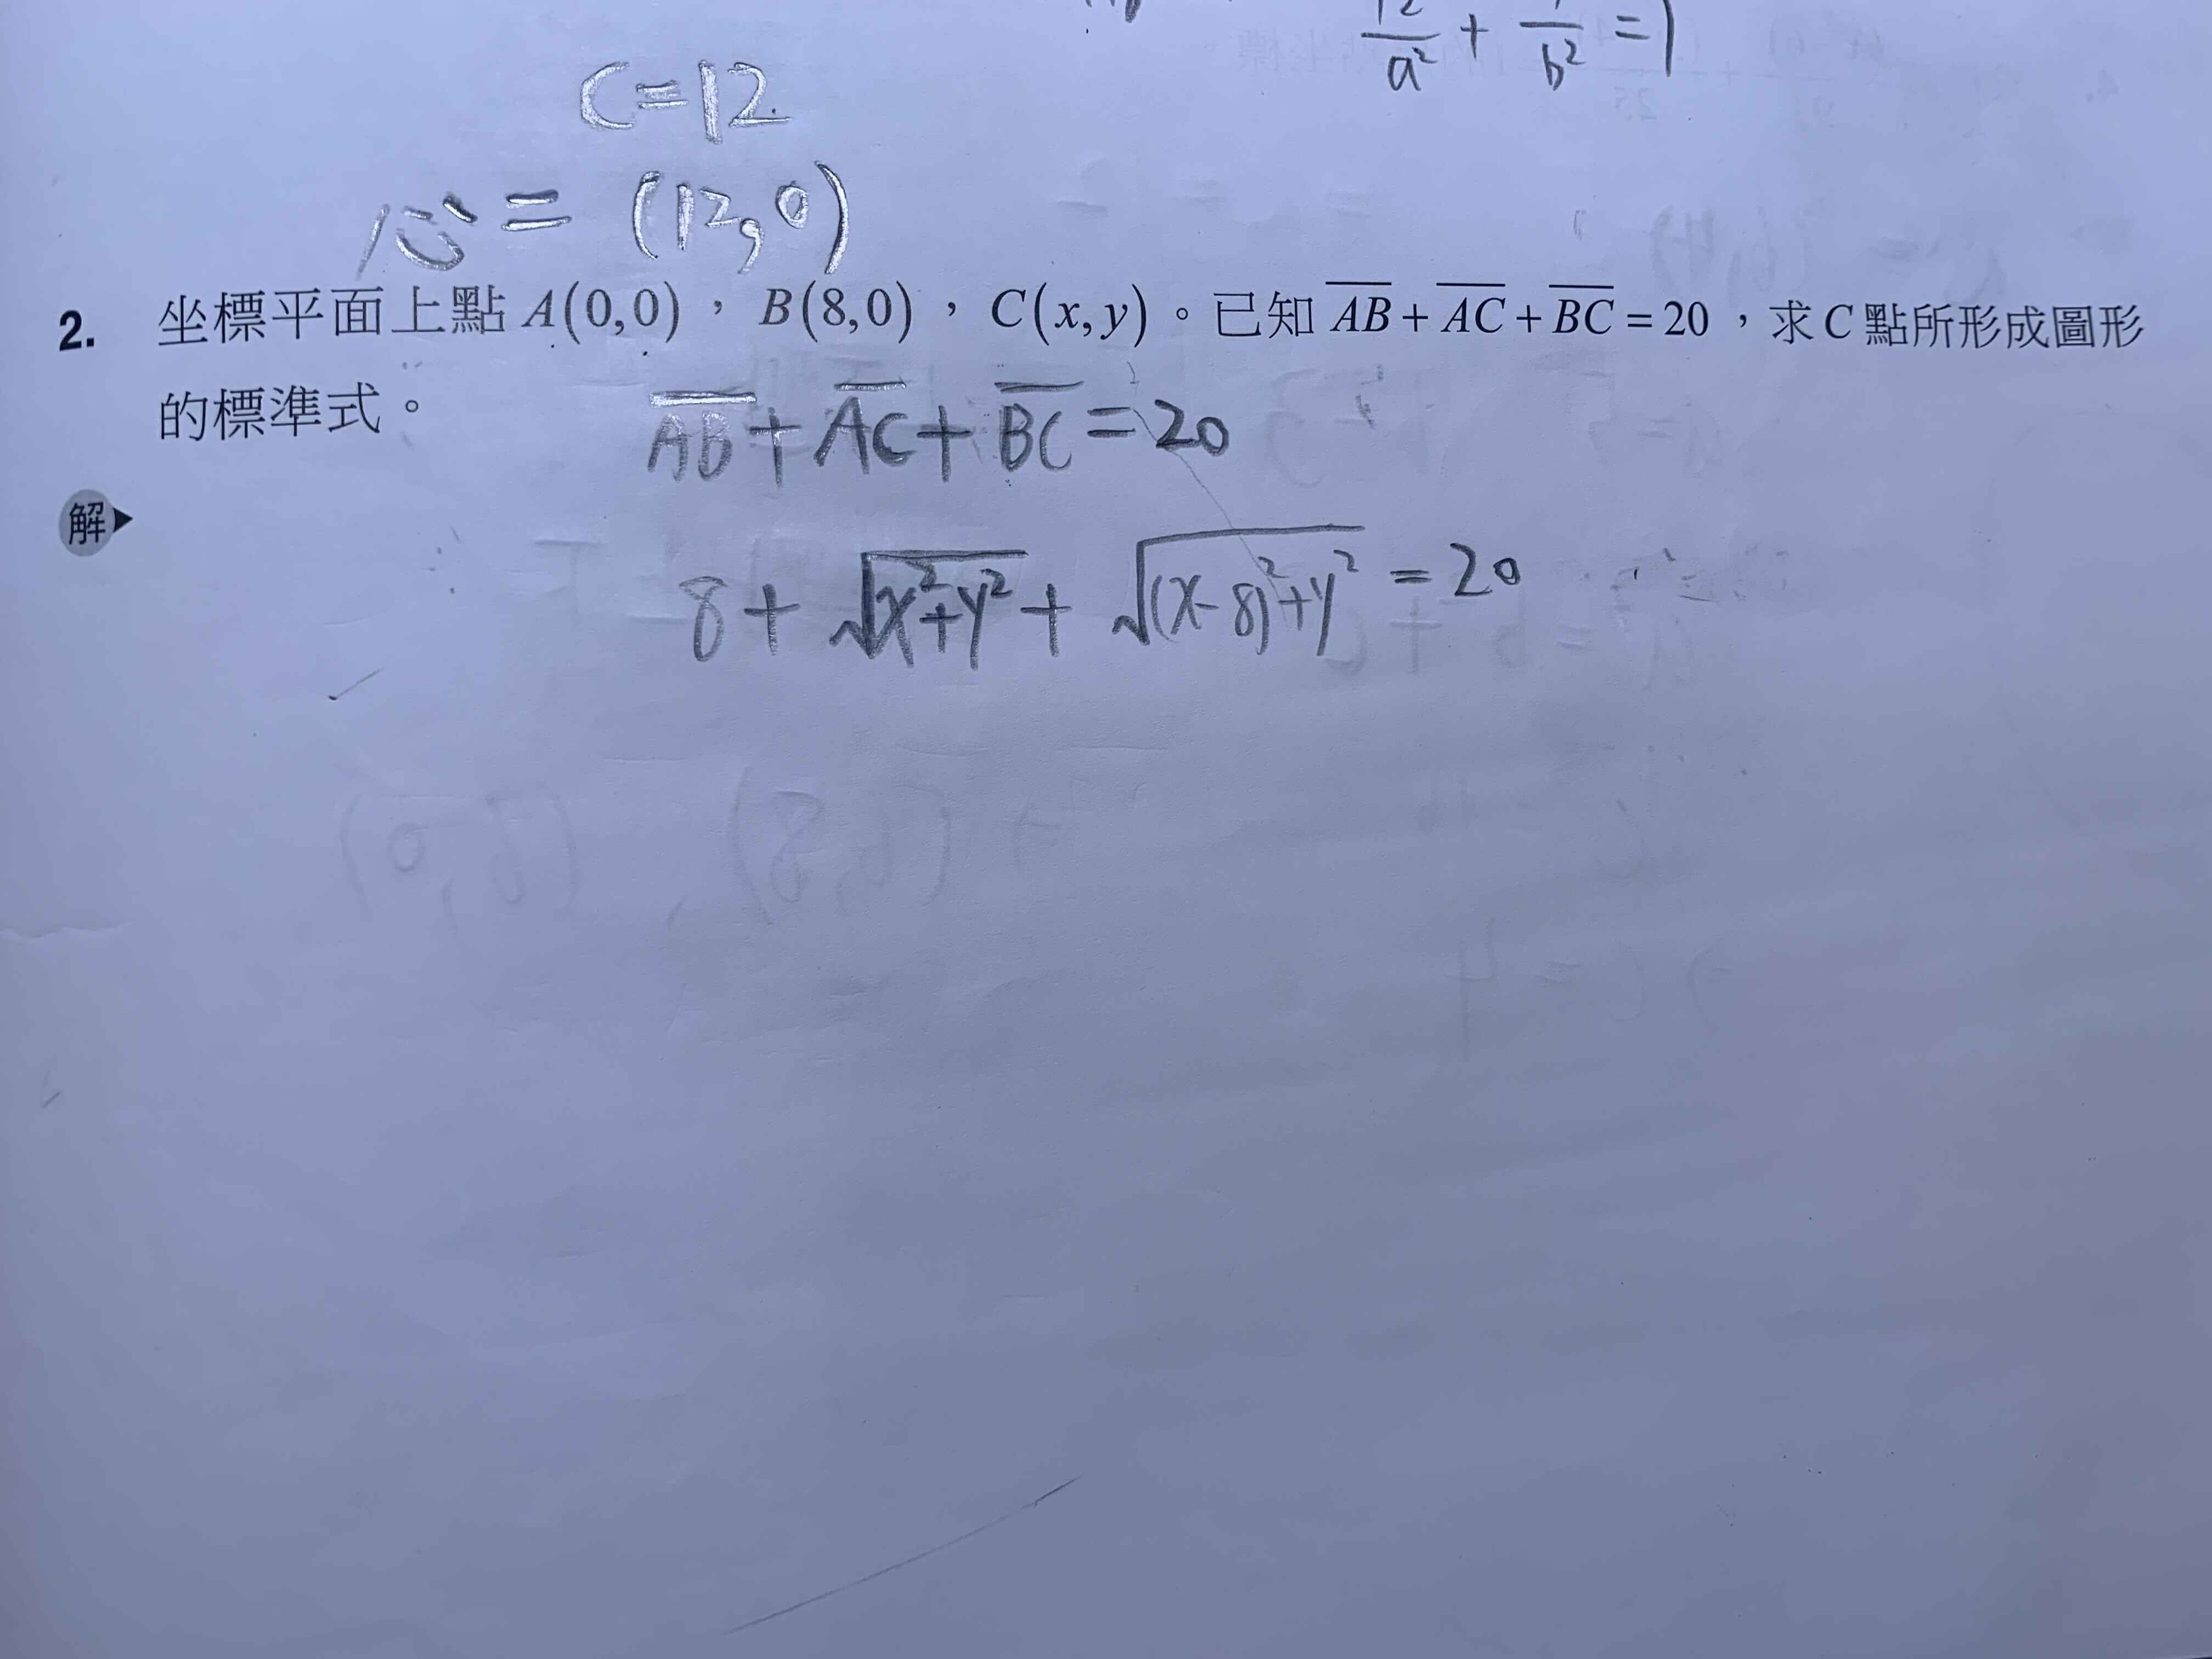 b² =1
a² +
C=12
心 = (12,0)
2. 坐標平面上點 A(0,0),B(8,0),C(x,y)。已知 AB + AC + BC = 20,求 C 點所形成圖形
的標準式。
AB + AC + BC = 20
解
8 + √x²+y² + √(x-8)²+y² = 20